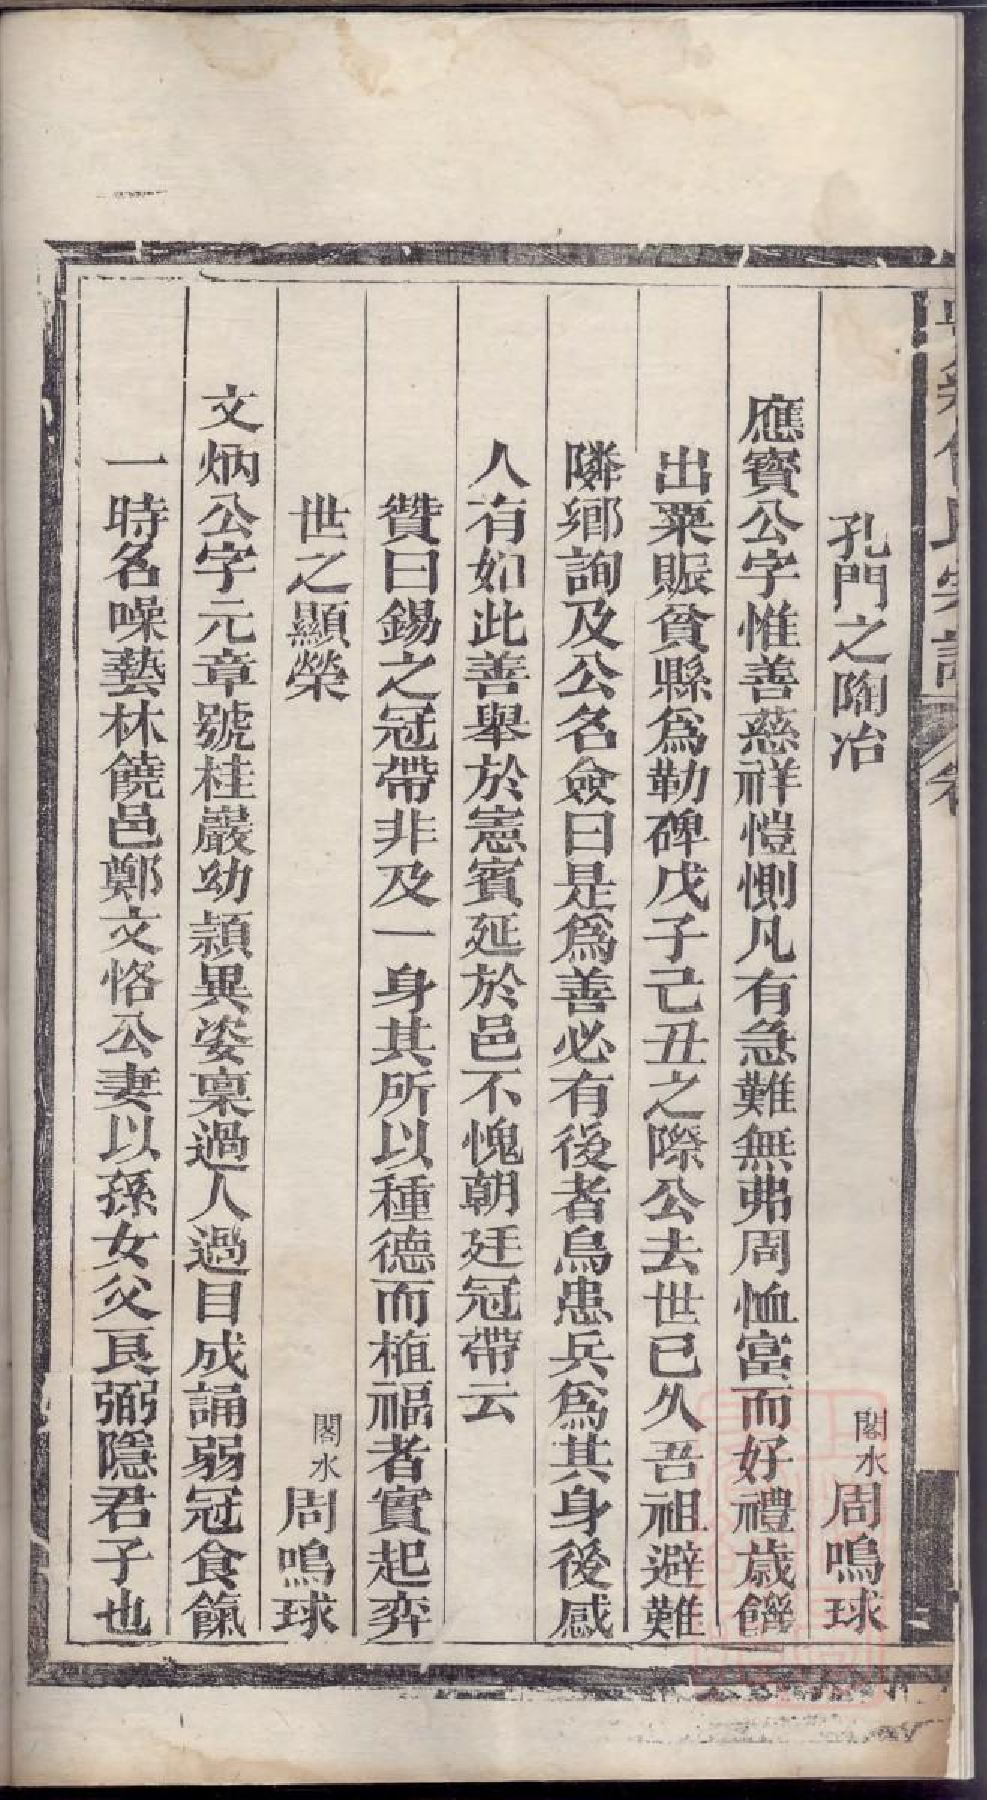 孔門之陶冶 閣水 周鳴球
應寳公字惟善慈祥愷惻凡有急難無弗周恤富而好禮歲饑
出粟賑貧縣爲勒碑戊子己丑之際公去世已久吾祖避難
隣鄉詢及公名僉曰是爲善必有後者烏患兵爲其身後感
人有如此善舉於憲賓延於邑不愧朝廷冠帶云
贊曰錫之冠帶非及一身其所以種德而植福者實起弈
世之顯榮 閣水 周鳴球
文炳公字元章號桂巖幼頴異姿稟過人過目成誦弱冠食餼
一時名噪藝林饒邑鄭文恪公妻以孫女父良弼隱君子也